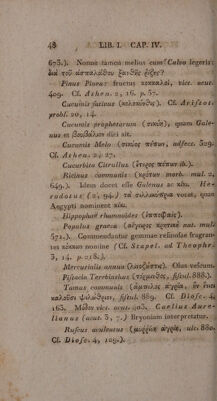 48 LIB. I. CAP. IV.
673.). Nonne tamen melius cum Calvo legeris:
διὰ τοῦ ἀσπαλάθου ξανθῆς ῥίζης?
Pinus Pinea: fructus κόκκαλοι, vict. acut.
409. Cf. Athen. 2, 16. p. 57.
Cucumis sativus (κολοκύνθη). Cf. Aristot.
probl. 20, 14.
Cucumis prophetarum (σικύη), quam Gale-
nus et βουβάλιον dici ait.
Cucumis Melo (σίκυος πέπων, adfect. 529.
Cf. Athen. 2. 27.
Cucurbita Citrullus (ἕτερος πέπων ib.).
Ricinus communis (κρότων morb. mul. 2,
649.). Idem docet esse Galenus ac κίκι. He-
rodotus (2, 94.) τὰ σιλλικύπρια vocat, quam
Aegypti nominent κίκι.
Hippophaë rhamnoides (ἱππόφαες).
Populus graeca (αἴγειρος κρητικὴ nat. mul.
572.). Commendantur gemmae resinosae fragran-
tes κόκκοι nomine (Cf. Stapel. ad Theophr.
3, 14. p. 218.).
Mercurialis annua (λινόζωστις). Olus vescum.
Pistacia Terebinthus (τέρμινθος, fistul. 888.).
Tamus communis (ἄμπελος ἀγρία, ἣν ἔνιοι
καλοῦσι ψίλωθρον, fistul. 889. Cf. Diosc. 4,
183. Mox vict. acut. 403. Caelius Aure-
lianus (acut. 3, 7.) Bryoniam interpretatur.
Ruscus aculeatus (μυῤῥίνη ἀγρία, ulc. 880.
Cf. Diosc. 4, 109.).